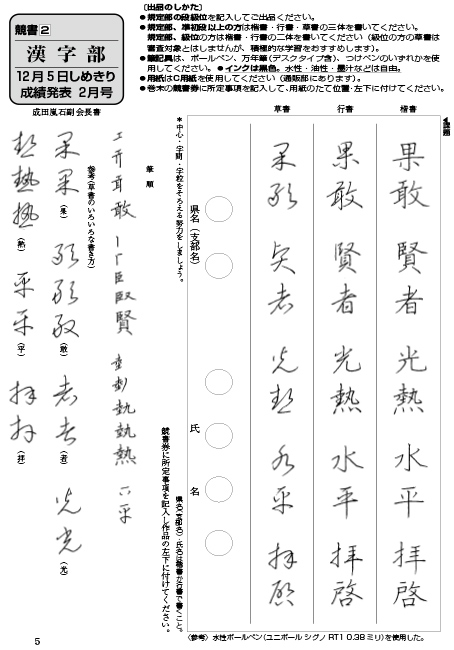 競書2
漢字部
12月5日しめきり
成績発表 2月号
成田嵐石副会長書
〔出品のしかた〕
●規定部の段級位を記入してご出品ください。
●規定部、準初段以上の方は楷書・行書・草書の三体を書いてください。
規定部、級位の方は楷書・行書の二体を書いてください（級位の方の草書は
審査対象とはしませんが、積極的な学習をおすすめします）。
●筆記具は、ボールペン、万年筆（デスクタイプ含）、つけペンのいずれかを使
用してください。●インクは黒色。水性・油性・墨汁などは自由。
●用紙はC用紙を使用してください（通販部にあります）。
●巻末の競書券に所定事項を記入して、用紙のたて位置・左下に付けてください。
楷書
果敢 賢者 光熱 水平 拝啓
行書
果敢 賢者 光熱 水平 拝啓
草書
果敢 賢者 光熱 水平 拝啓
県名（支部名）
氏名
県名（支部名）・氏名は楷書か行書で書くこと。
競書券に所定事項を記入し作品の左下に付けてください。
＊中心・字間・字粒をそろえる努力をしましょう。
筆順
敢
賢
熱
平
参考（草書のいろいろな書き方）
（果）
（敢）
（者）
（光）
（熱）
（平）
（拝）
〈参考〉 水性ボールペン（ユニボール シグノ RT1 0.38ミリ）を使用した。
5